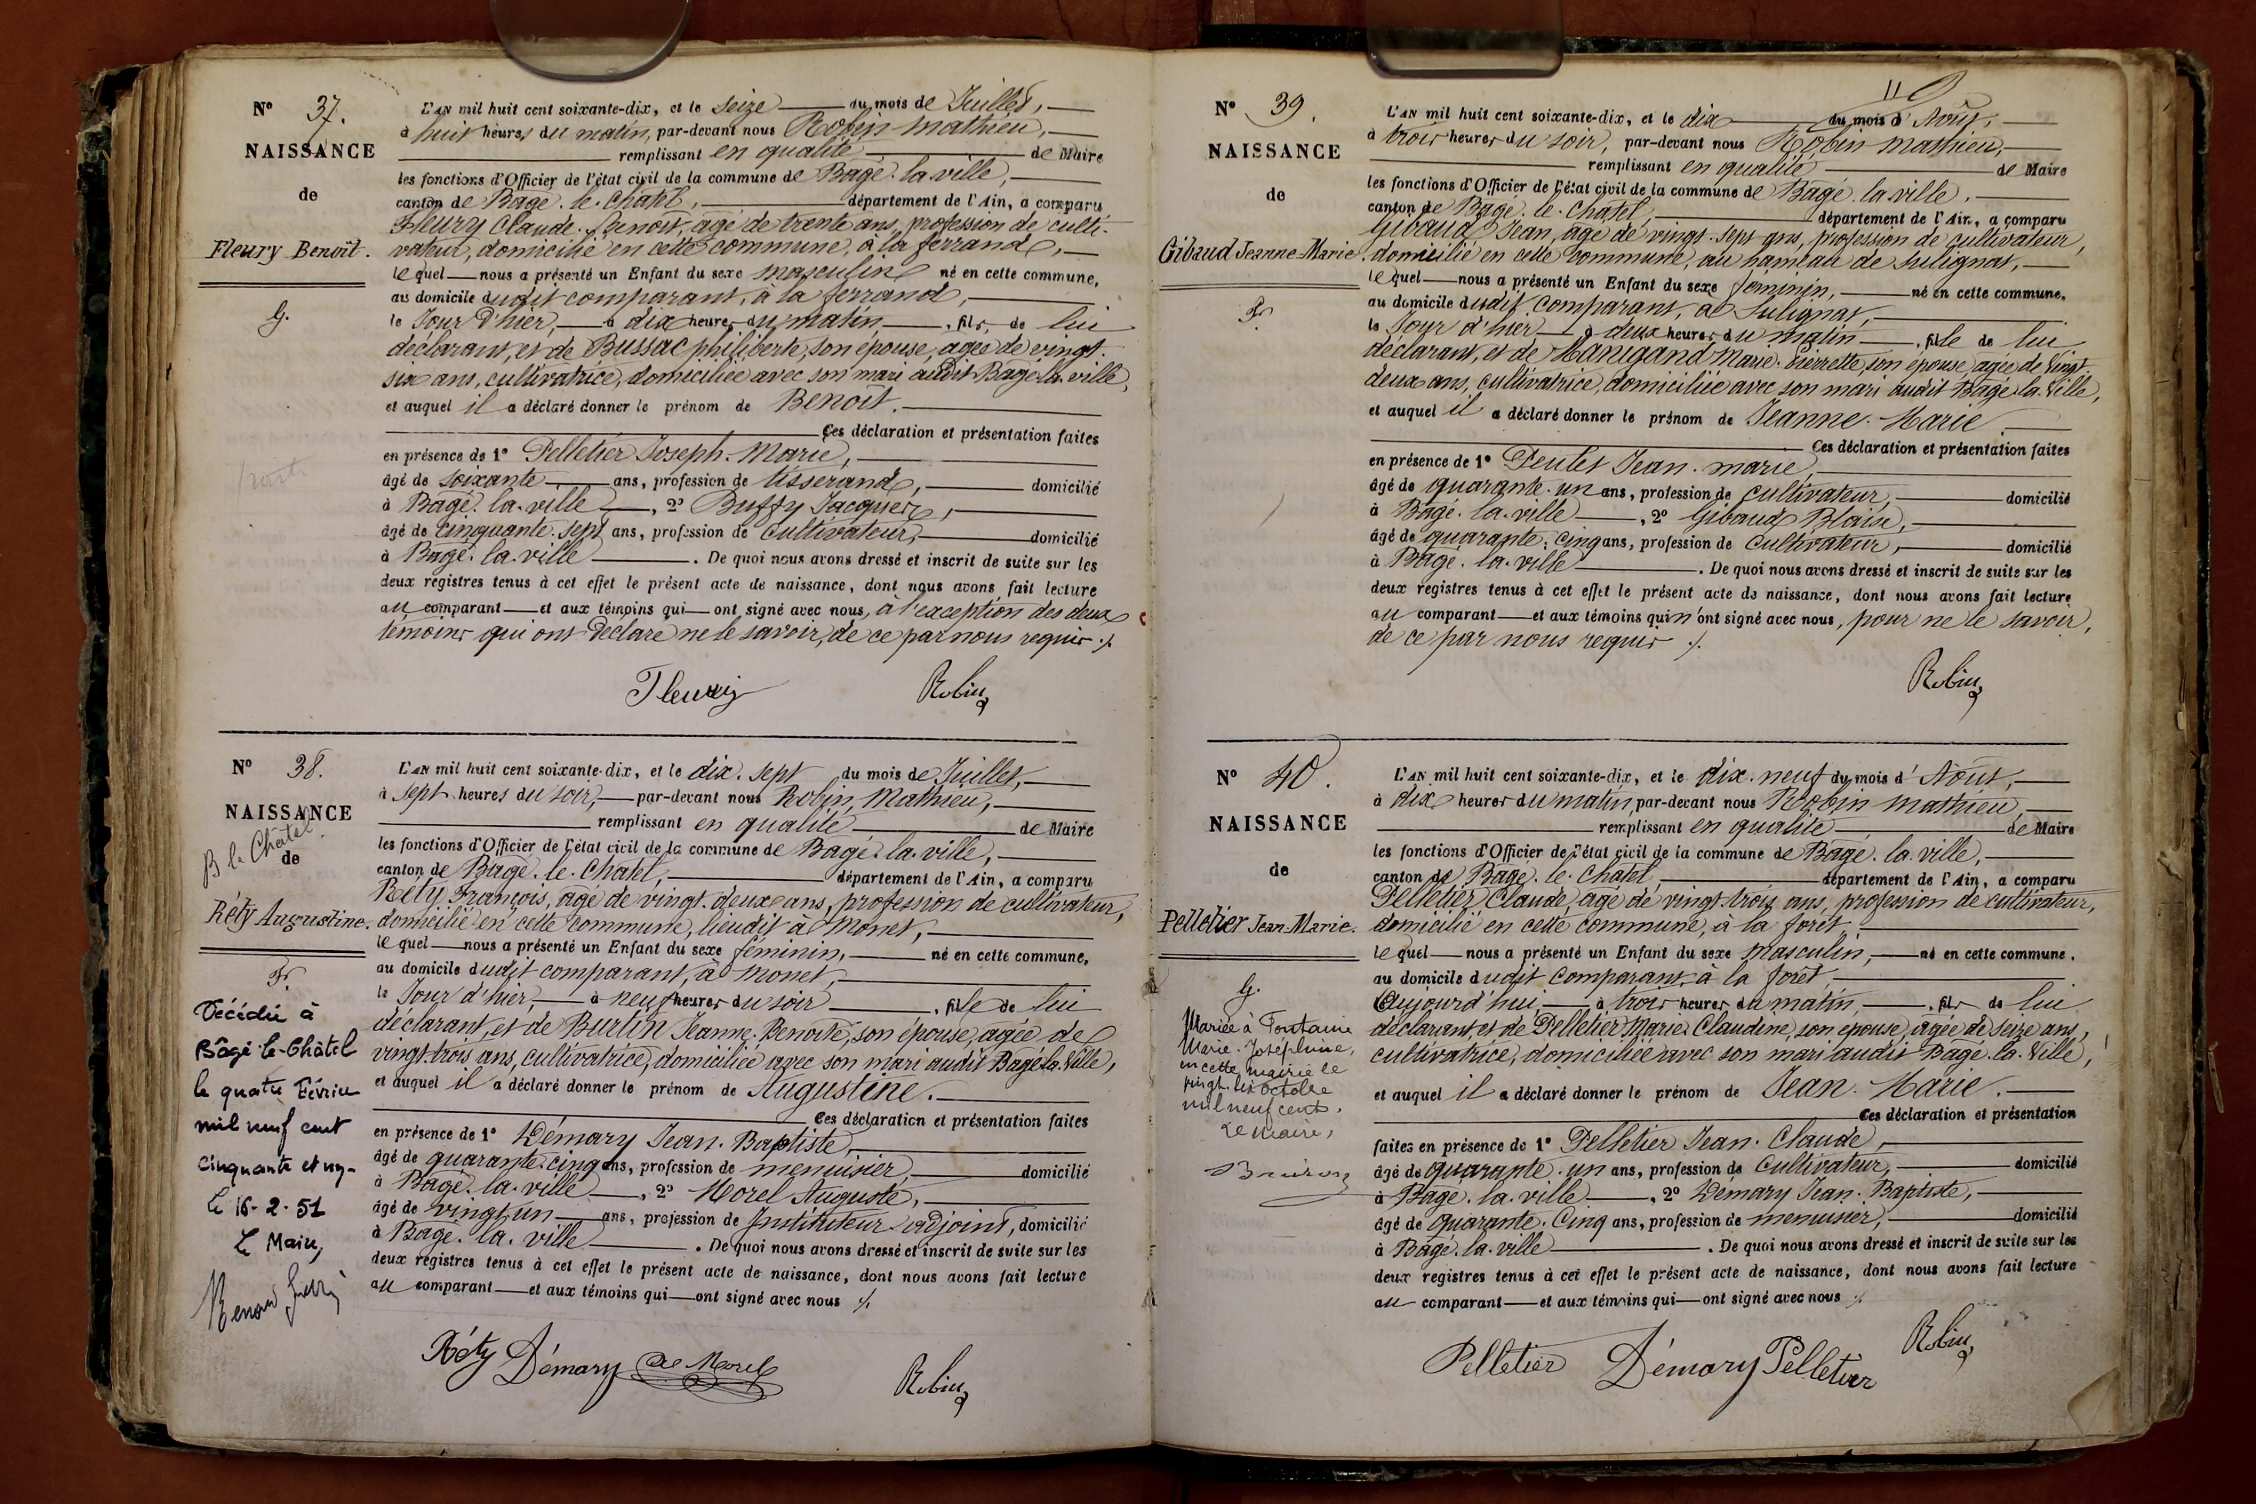 N° 37.
NAISSANCE
de
Fleury Benoît.
G.
L'AN mil huit cent soixante-dix, et le seize du mois de Juillet,
à huit heures du matin, par-devant nous Robin Mathieu,
remplissant en qualité de Maire
les fonctions d'Officier de l'état civil de la commune de Bagé-la-ville,
canton de Bagé-le-Châtel, département de l'Ain, a comparu
Fleury Claude-Benoit, agé de trente ans, profession de culti-
vateur, domicilié en cette commune, à la ferrand,
lequel nous a présenté un Enfant du sexe masculin né en cette commune,
au domicile dudit comparant, à la ferrand,
le Jour d'hier, à dix heures du matin, fils de lui
déclarant, et de Bussac philiberte, son épouse, agée de vingt-
six ans, cultivatrice, domiciliée avec son mari audit Bagé-la-ville,
et auquel il a déclaré donner le prénom de Benoît.
Ces déclaration et présentation faites
en présence de 1° Pelletier Joseph-Marie,
âgé de soixante ans, profession de tisserand, domicilié
à Bagé-la-ville, 2° Buffy Jacques,
âgé de cinquante-sept ans, profession de cultivateur, domicilié
à Bagé-la-ville. De quoi nous avons dressé et inscrit de suite sur les
deux registres tenus à cet effet le présent acte de naissance, dont nous avons fait lecture
au comparant et aux témoins qui ont signé avec nous, à l'exception des deux
témoins qui ont déclaré ne le savoir, de ce par nous requis ./.
Fleury Robin
N° 38.
NAISSANCE
B le Châtel
de
Réty Augustine.
F.
Décédée à
Bâgé-le-Châtel
le quatre Février
mil neuf cent
cinquante et un-
Le 16-2-51
Le Maire,
L'AN mil huit cent soixante-dix, et le dix-sept du mois de Juillet,
à sept heures du soir, par-devant nous Robin Mathieu,
remplissant en qualité de Maire
les fonctions d'Officier de l'état civil de la commune de Bagé-la-ville,
canton de Bagé-le-Chatel, département de l'Ain, a comparu
Réty François, agé de vingt-deux ans, profession de cultivateur,
domicilié en cette commune, lieudit à Monet,
lequel nous a présenté un Enfant du sexe féminin, né en cette commune,
au domicile dudit comparant, à Monet,
le Jour d'hier, à neuf heures du soir, fille de lui
déclarant, et de Burtin Jeanne-Benoite, son épouse, agée de
vingt-trois ans, cultivatrice, domiciliée avec son mari audit Bagé-la-Ville,
et auquel il a déclaré donner le prénom de Augustine.
Ces déclaration et présentation faites
en présence de 1° Démary Jean-Baptiste,
âgé de quarante-cinq ans, profession de menuisier, domicilié
à Bagé-la-ville, 2° Morel Auguste,
âgé de vingt-un ans, profession de Instituteur adjoint, domicilié
à Bagé-la-ville. De quoi nous avons dressé et inscrit de suite sur les
deux registres tenus à cet effet le présent acte de naissance, dont nous avons fait lecture
au comparant et aux témoins qui ont signé avec nous ./.
Réty Démary Morel Robin
N° 39.
NAISSANCE
de
Gibaud Jeanne-Marie.
F.
L'AN mil huit cent soixante-dix, et le dix du mois d'Août,
à trois heures du soir, par-devant nous Robin Mathieu,
remplissant en qualité de Maire
les fonctions d'Officier de l'état civil de la commune de Bagé-la-ville,
canton de Bagé-le-Chatel, département de l'Ain, a comparu
Gibaud Jean, agé de vingt-sept ans, profession de cultivateur,
domicilié en cette commune, au hameau de Sulignat,
lequel nous a présenté un Enfant du sexe féminin, né en cette commune,
au domicile dudit comparant, à Sulignat,
le Jour d'hier à deux heures du matin, fille de lui
déclarant, et de Manigand Marie-Pierrette, son épouse, agée de Vingt-
deux ans, cultivatrice, domiciliée avec son mari audit Bagé-la-Ville,
et auquel il a déclaré donner le prénom de Jeanne-Marie.
Ces déclaration et présentation faites
en présence de 1° Peulet Jean-marie,
âgé de quarante-un ans, profession de cultivateur, domicilié
à Bagé-la-ville, 2° Gibaud Blaise,
âgé de quarante-cinq ans, profession de Cultivateur, domicilié
à Bagé-la-ville. De quoi nous avons dressé et inscrit de suite sur les
deux registres tenus à cet effet le présent acte de naissance, dont nous avons fait lecture
au comparant et aux témoins qui n'ont signé avec nous, pour ne le savoir,
de ce par nous requis ./.
Robin
N° 40.
NAISSANCE
de
Pelletier Jean-Marie.
G.
Mariée à Fontaine
Marie-Joséphine,
en cette mairie le
vingt-six octobre
mil neuf cent.
Le Maire,
L'AN mil huit cent soixante-dix, et le dix-neuf du mois d'Août,
à dix heures du matin, par-devant nous Robin Mathieu,
remplissant en qualité de Maire
les fonctions d'Officier de l'état civil de la commune de Bagé-la-ville,
canton de Bagé-le-Chatel, département de l'Ain, a comparu
Pelletier Claude, agé de vingt-trois ans, profession de cultivateur,
domicilié en cette commune, à la forêt,
lequel nous a présenté un Enfant du sexe masculin, né en cette commune,
au domicile dudit comparant, à la forêt,
Aujourd'hui, à trois heures du matin, fils de lui
déclarant, et de Pelletier Marie-Claudine, son épouse, agée de seize ans,
cultivatrice, domiciliée avec son mari audit Bagé-la-Ville,
et auquel il a déclaré donner le prénom de Jean-Marie.
Ces déclaration et présentation
faites en présence de 1° Pelletier Jean-Claude,
âgé de quarante-un ans, profession de Cultivateur, domicilié
à Bagé-la-ville, 2° Démary Jean-Baptiste,
âgé de quarante-Cinq ans, profession de menuisier, domicilié
à Bagé-la-ville. De quoi nous avons dressé et inscrit de suite sur les
deux registres tenus à cet effet le présent acte de naissance, dont nous avons fait lecture
au comparant et aux témoins qui ont signé avec nous ./.
Pelletier Démary Pelletier Robin